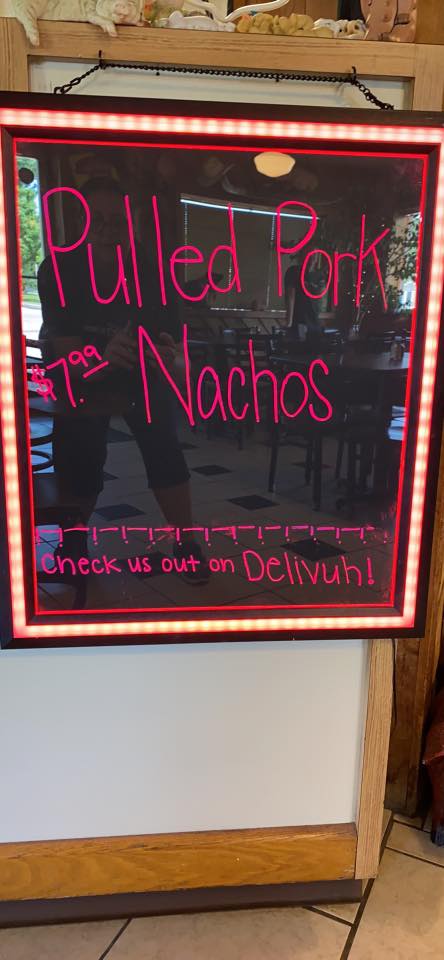 Pulled Pork
$7.99 Nachos
Check us out on Delivuh!